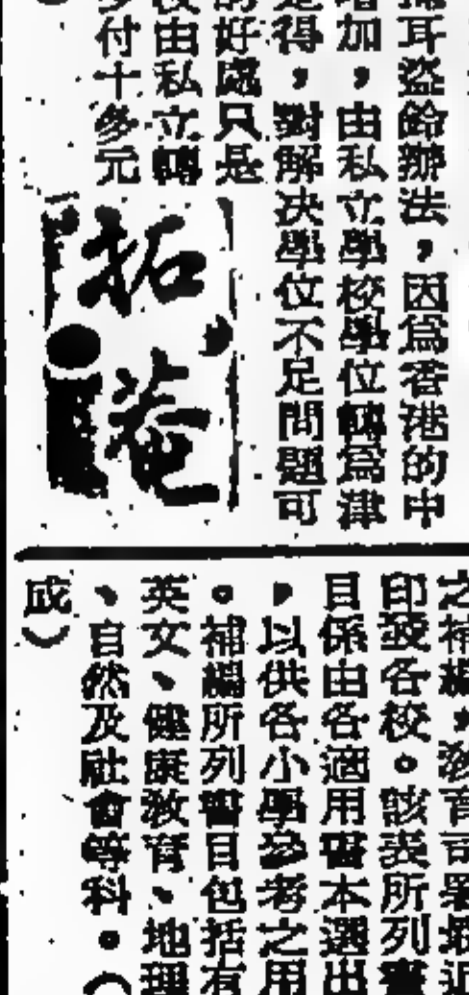 掩耳盜鈴辦法，因爲香港的中
增加，由私立學校學位轉爲津
是得，對解決學位不足問題可
的好處只是
校由私立轉
多付十多元
拓
之補編，教育司署最近
印發各校。該表所列書
目係由各適用書本選出
，以供各小學參考之用
。補編所列書目包括有
英文、健康教育、地理
、自然及社會等科。（
成）